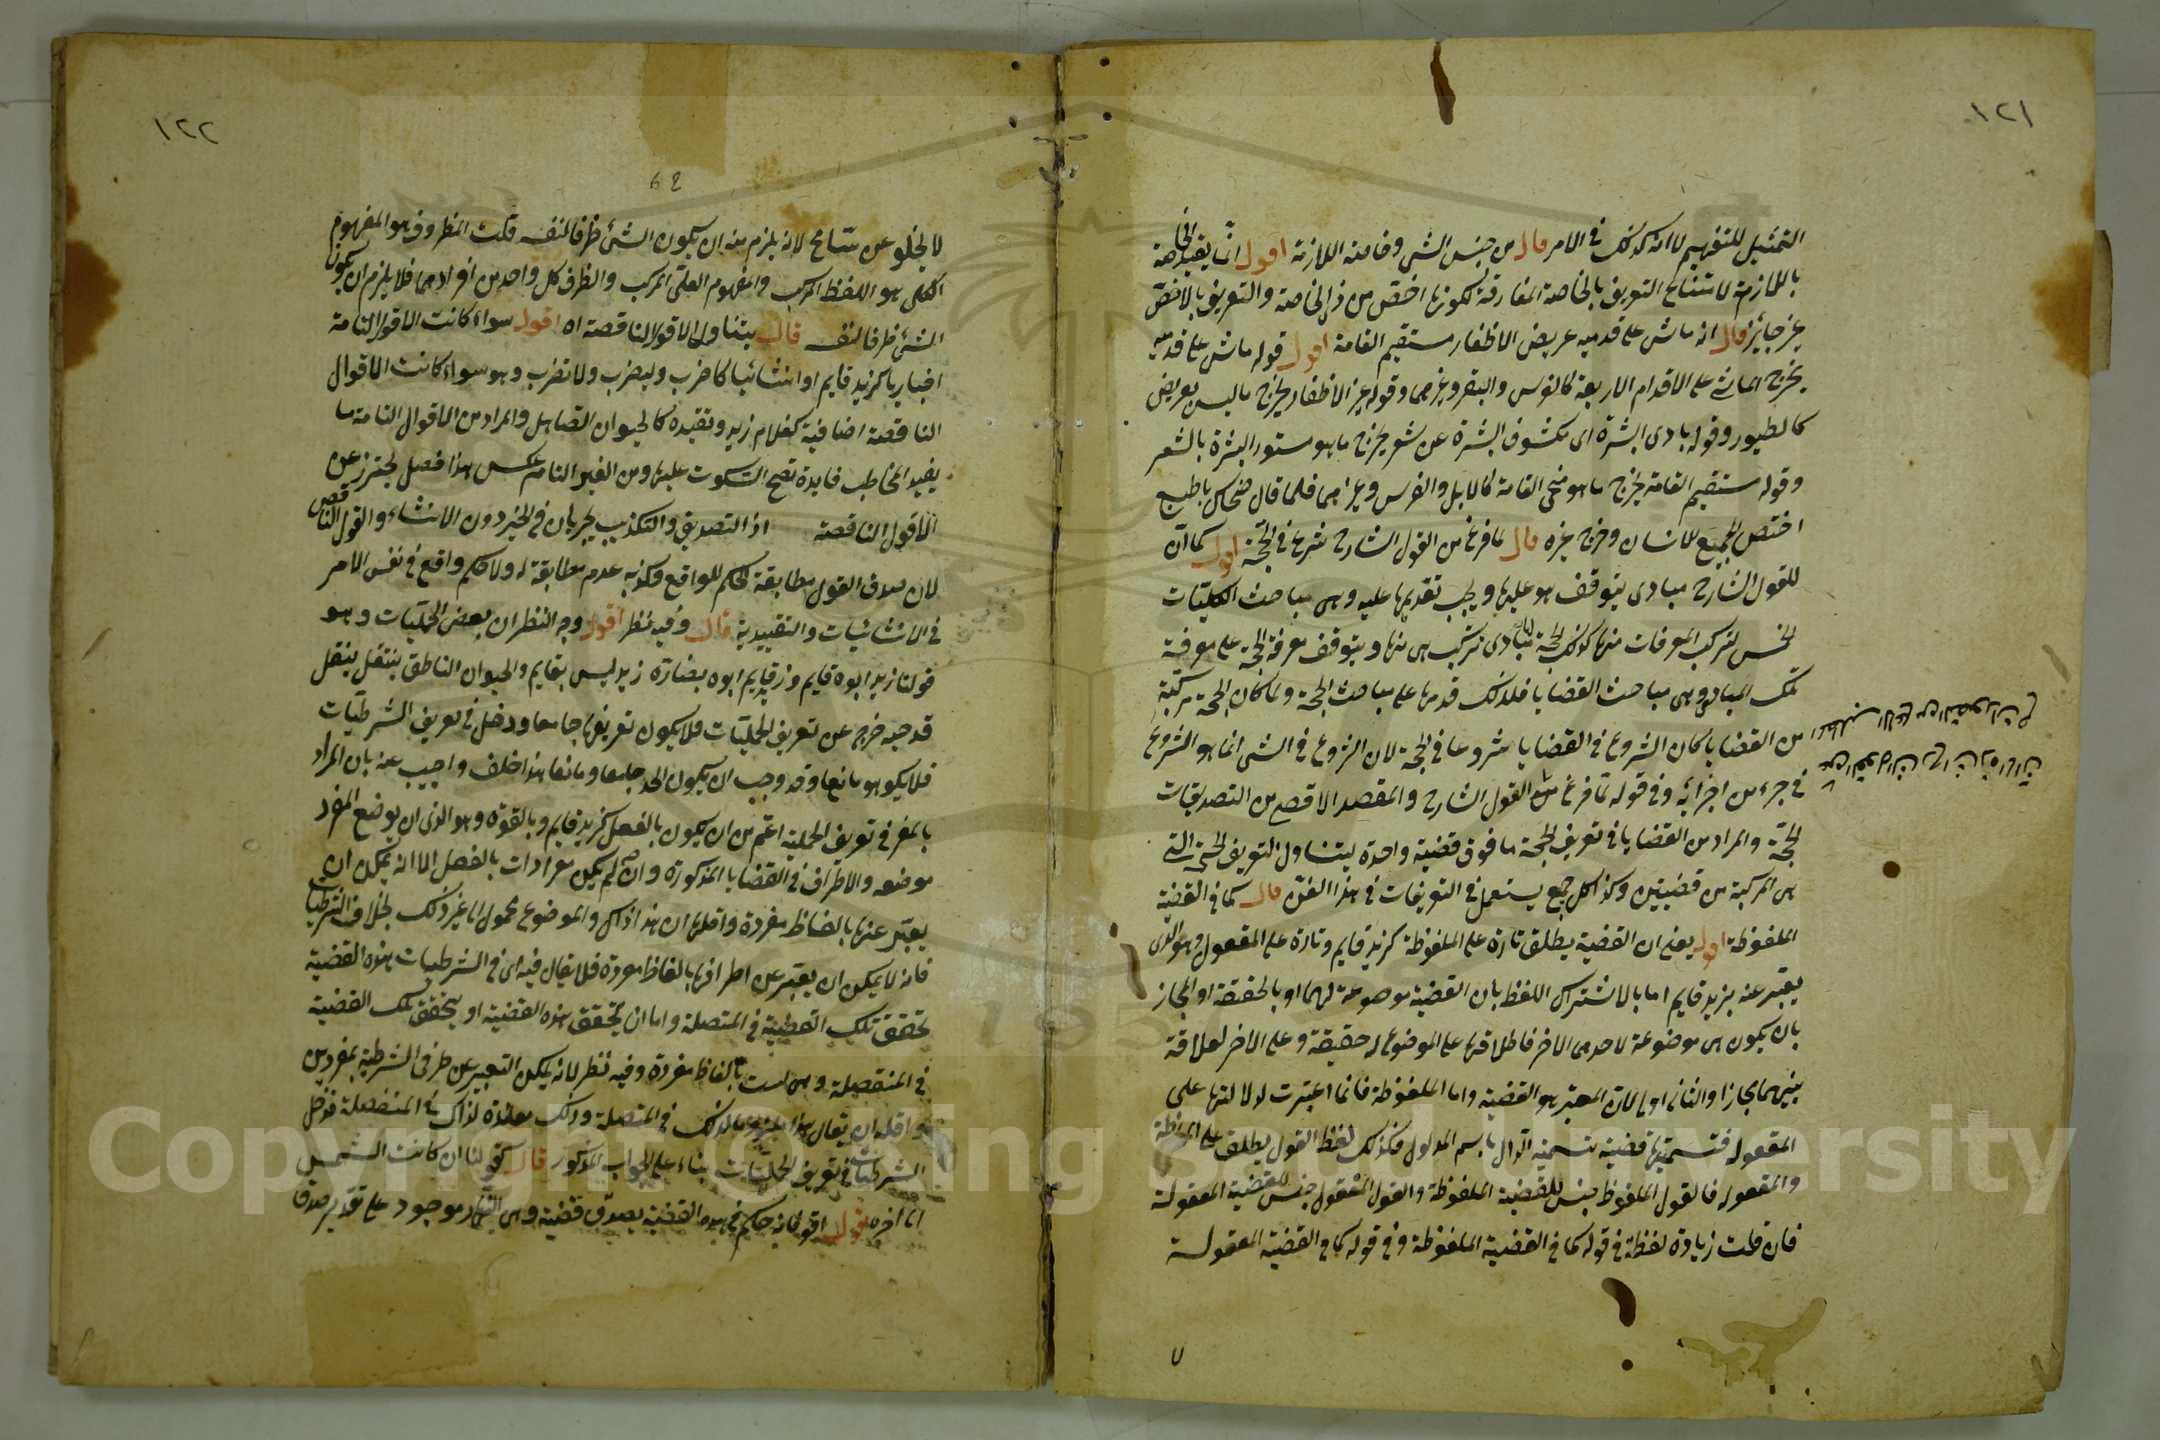 ١٢١
التمثيل للتفهيم لا انه كذلك في الامر قال من جنس الشئ وخاصته اللازمة اقول انما يقيد الخاصة
باللازمة لامتناع التعريف بالخاصة المفارقة لكونها اخص من ذي الخاصة والتعريف بالاخص
غير جائز قال انه ماش على قدميه عريض الاظفار مستقيم القامة اقول قوله ماش على قدميه
يخرج الماشى على الاقدام الاربعة كالفرس والبقر وغيرهما وقوله عريض الاظفار يخرج ما ليس بعريض
كالطيور وقوله بادى البشرة اى مكشوف البشرة عن شعر يخرج ما هو مستور البشرة بالشعر
وقوله مستقيم القامة يخرج ما هو منحنى القامة كالابل والفرس وغيرهما فلما قال ضحاك بالطبع
اختص الجميع للانسان وخرج غيره قال لما فرغ من القول الشارح شرع في الحجة اقول كما ان
للقول الشارح مبادى يتوقف هو عليها ويجب تقديمها عليه وهى مباحث الكليات
الخمس لتركب المعرفات منها كذلك للحجة مبادى تتركب هى منها ويتوقف معرفة الحجة على معرفة
تلك المبادى وهى مباحث القضايا فلذلك قدمها على مباحث الحجة ولما كان الحجة مركبة
من القضايا كان الشروع في القضايا شروعا في الحجة لان الشروع في الشئ انما هو الشروع
في جزء من اجزائه وفي قوله لما فرغ من القول الشارح والمقصد الاقصى من التصديقات
الحجة والمراد من القضايا في تعريف الحجة ما فوق قضية واحدة ليتناول التعريف الحجة التى
هى المركبة من قضيتين وكذا كل جمع يستعمل في التعريفات في هذا الفن قال كما في القضية
الملفوظة اقول يعنى ان القضية يطلق تارة على الملفوظة كزيد قايم وتارة على المعقول وهو الذى
يعبر عنه بزيد قايم اما بالاشتراك اللفظ بان القضية موضوعة لهما او بالحقيقة او المجاز
بان يكون هى موضوعة لاحدهما لا الاخر فاطلاقها على الموضوع له حقيقة وعلى الاخر لعلاقة
بينهما مجازا والثانى اولى لان المعتبر هو القضية واما الملفوظة فانما اعتبرت لدلالتها على
المعقول فتسميتها قضية تسمية الدال باسم المدلول فكذلك لفظ القول يطلق على الملفوظة
والمعقوله فالقول الملفوظ جنس للقضية الملفوظة والقول المعقول جنس للقضية المعقولة
فان قلت زيادة لفظة في قوله كما في القضية الملفوظة وفي قوله كما في القضية المعقولة
٧
١٢٢
لا يخلو عن تسامح لانه يلزم منه ان يكون الشئ ظرفا لنفسه قلت المظروف هو المفهوم
الكلى هو اللفظ المركب والمفهوم العقلى المركب والظرف كل واحد من افرادهما فلا يلزم ان يكون
الشئ ظرفا لنفسه قال يتناول الاقوال الناقصة اه اقول سواء كانت الاقوال التامة
اخباريا كزيد قايم او انشائيا كاضرب وليضرب ولا تضرب وهو سواء كانت الاقوال
الناقصة اضافية كغلام زيد وتقيده كالحيوان الصاهل والمراد من الاقوال التامة ما
يفيد المخاطب فايدة تصح السكوت عليها ومن الغير التام عكس هذا فصل يحترز عن
الاقول الناقصة اذ التصديق والتكذيب يجريان في الخبر دون الانشاء والقول الناقص
لان صدق القول مطابقة الحكم للواقع وكذبه عدم مطابقة له ولا حكم واقع في نفس الامر
في الانشائيات والتقييدية قال وفيه نظر اقول وجه النظر ان بعض الحمليات وهو
قولنا زيد ابوه قايم وزيد قايم ابوه يضاده زيد ليس بقايم والحيوان الناطق ينتقل بنقل
قدميه خرج عن تعريف الحمليات فلا يكون تعريفها جامعا ودخل في تعريف الشرطيات
فلا يكون هو مانعا وقد وجب ان يكون الحد جامعا ومانعا هذا خلف واجيب عنه بان المراد
بالمفرد في تعريف الحملية اعم من ان يكون بالفعل كزيد قايم وبالقوة وهو الذى ان يوضع المفرد
موضعه والاطراف في القضايا المذكورة وان لم يكن مفردات بالفعل الا انه يمكن ان
يعبر عنها بالفاظ مفردة واقلها ان هذا ذاك والموضوع محمول الى غير ذلك بخلاف الشرطيات
فانه لا يمكن ان يعبر عن اطرافها بالفاظ مفردة فلا يقال فيه اى في الشرطيات هذه القضية
تحقق تلك القضية في المتصلة واما ان تحقق هذه القضية او يتحقق تلك القضية
في المنفصلة وهى ليست بالفاظ مفردة وفيه نظر لانه يمكن التعبير عن طرفى الشرطية بمفردين
واقله ان يقال هذا ملزوم لذلك في المتصلة وذلك معاندة لذاك في المنفصلة فدخل
الشرطيات في تعريف الحمليات بناء على الجواب المذكور قال كقولنا ان كانت الشمس
الى اخره اقول فانه حكم في هذه القضية بصدق قضية وهى النهار موجود على تقدير صدق